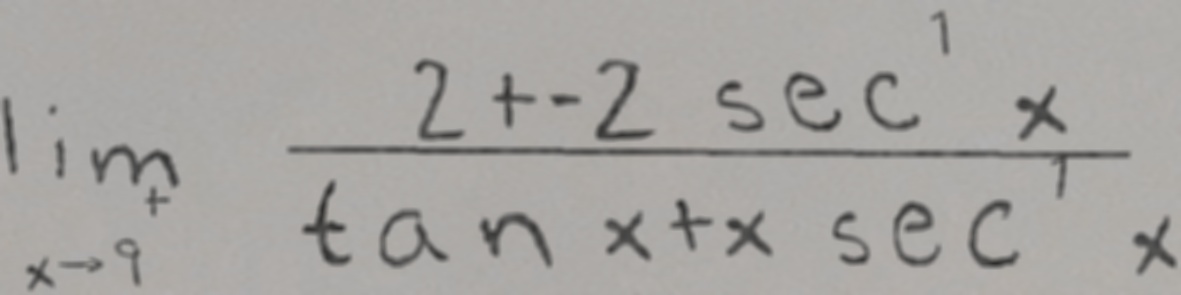 lim x→9⁺ (2 + -2 sec¹ x) / (tan x + x sec¹ x)